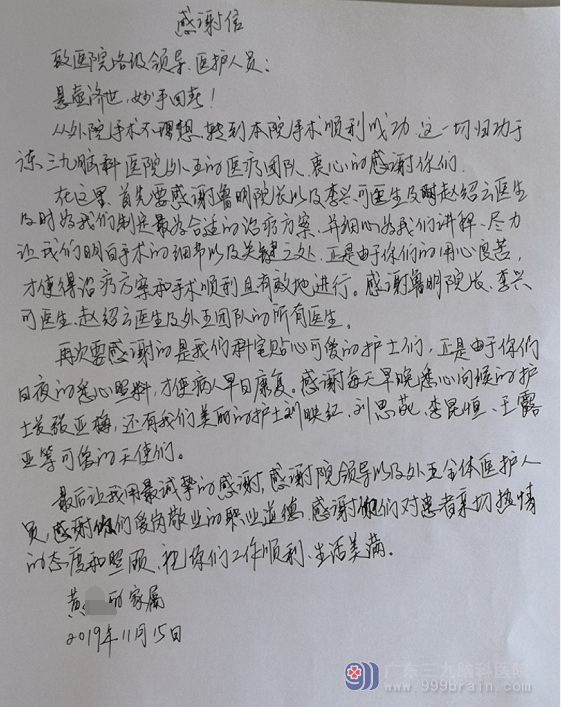 感谢信
致医院各级领导、医护人员：
悬壶济世，妙手回春！
从外院手术不理想，转到本院手术顺利成功，这一切归功于
三九脑科医院外五的医疗团队，衷心的感谢你们。
在这里，首先要感谢鲁明院长以及李兴可医生及赵绍云医生
及时为我们制定最为合适的治疗方案，并细心为我们讲释，尽力
让我们明白手术的细节以及关键之处，正是由于你们的用心良苦，
才使得治疗方案和手术顺利且有效地进行。感谢鲁明院长、李兴
可医生、赵绍云医生及外五团队的所有医生。
再次要感谢的是我们科室贴心可爱的护士们，正是由于你们
日夜的悉心照料，才使病人早日康复。感谢每天早晚悉心问候的护
士长张亚梅，还有我们美丽的护士刘映红、刘思苑、李昆恒、王露
亚等可爱的天使们。
最后让我用最诚挚的感谢，感谢院领导以及外五全体医护人
员，感谢你们爱岗敬业的职业道德，感谢你们对患者亲切热情
的态度和照顾，祝你们工作顺利、生活美满。
黄 的家属
2019年11月15日
广东三九脑科医院
www.999brain.com